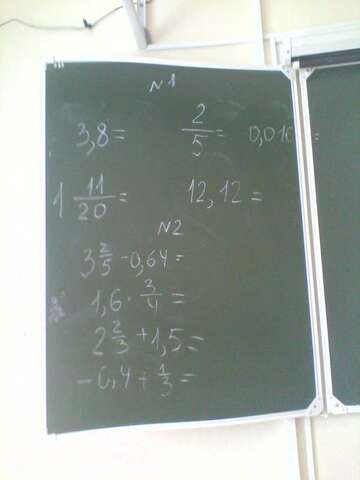 №1
3,8=
2/5= 0,016=
1 11/20= 12,12=
№2
3 2/5 - 0,64=
1,6 · 3/4 =
2 2/3 + 1,5=
- 0,4 + 1/3 =